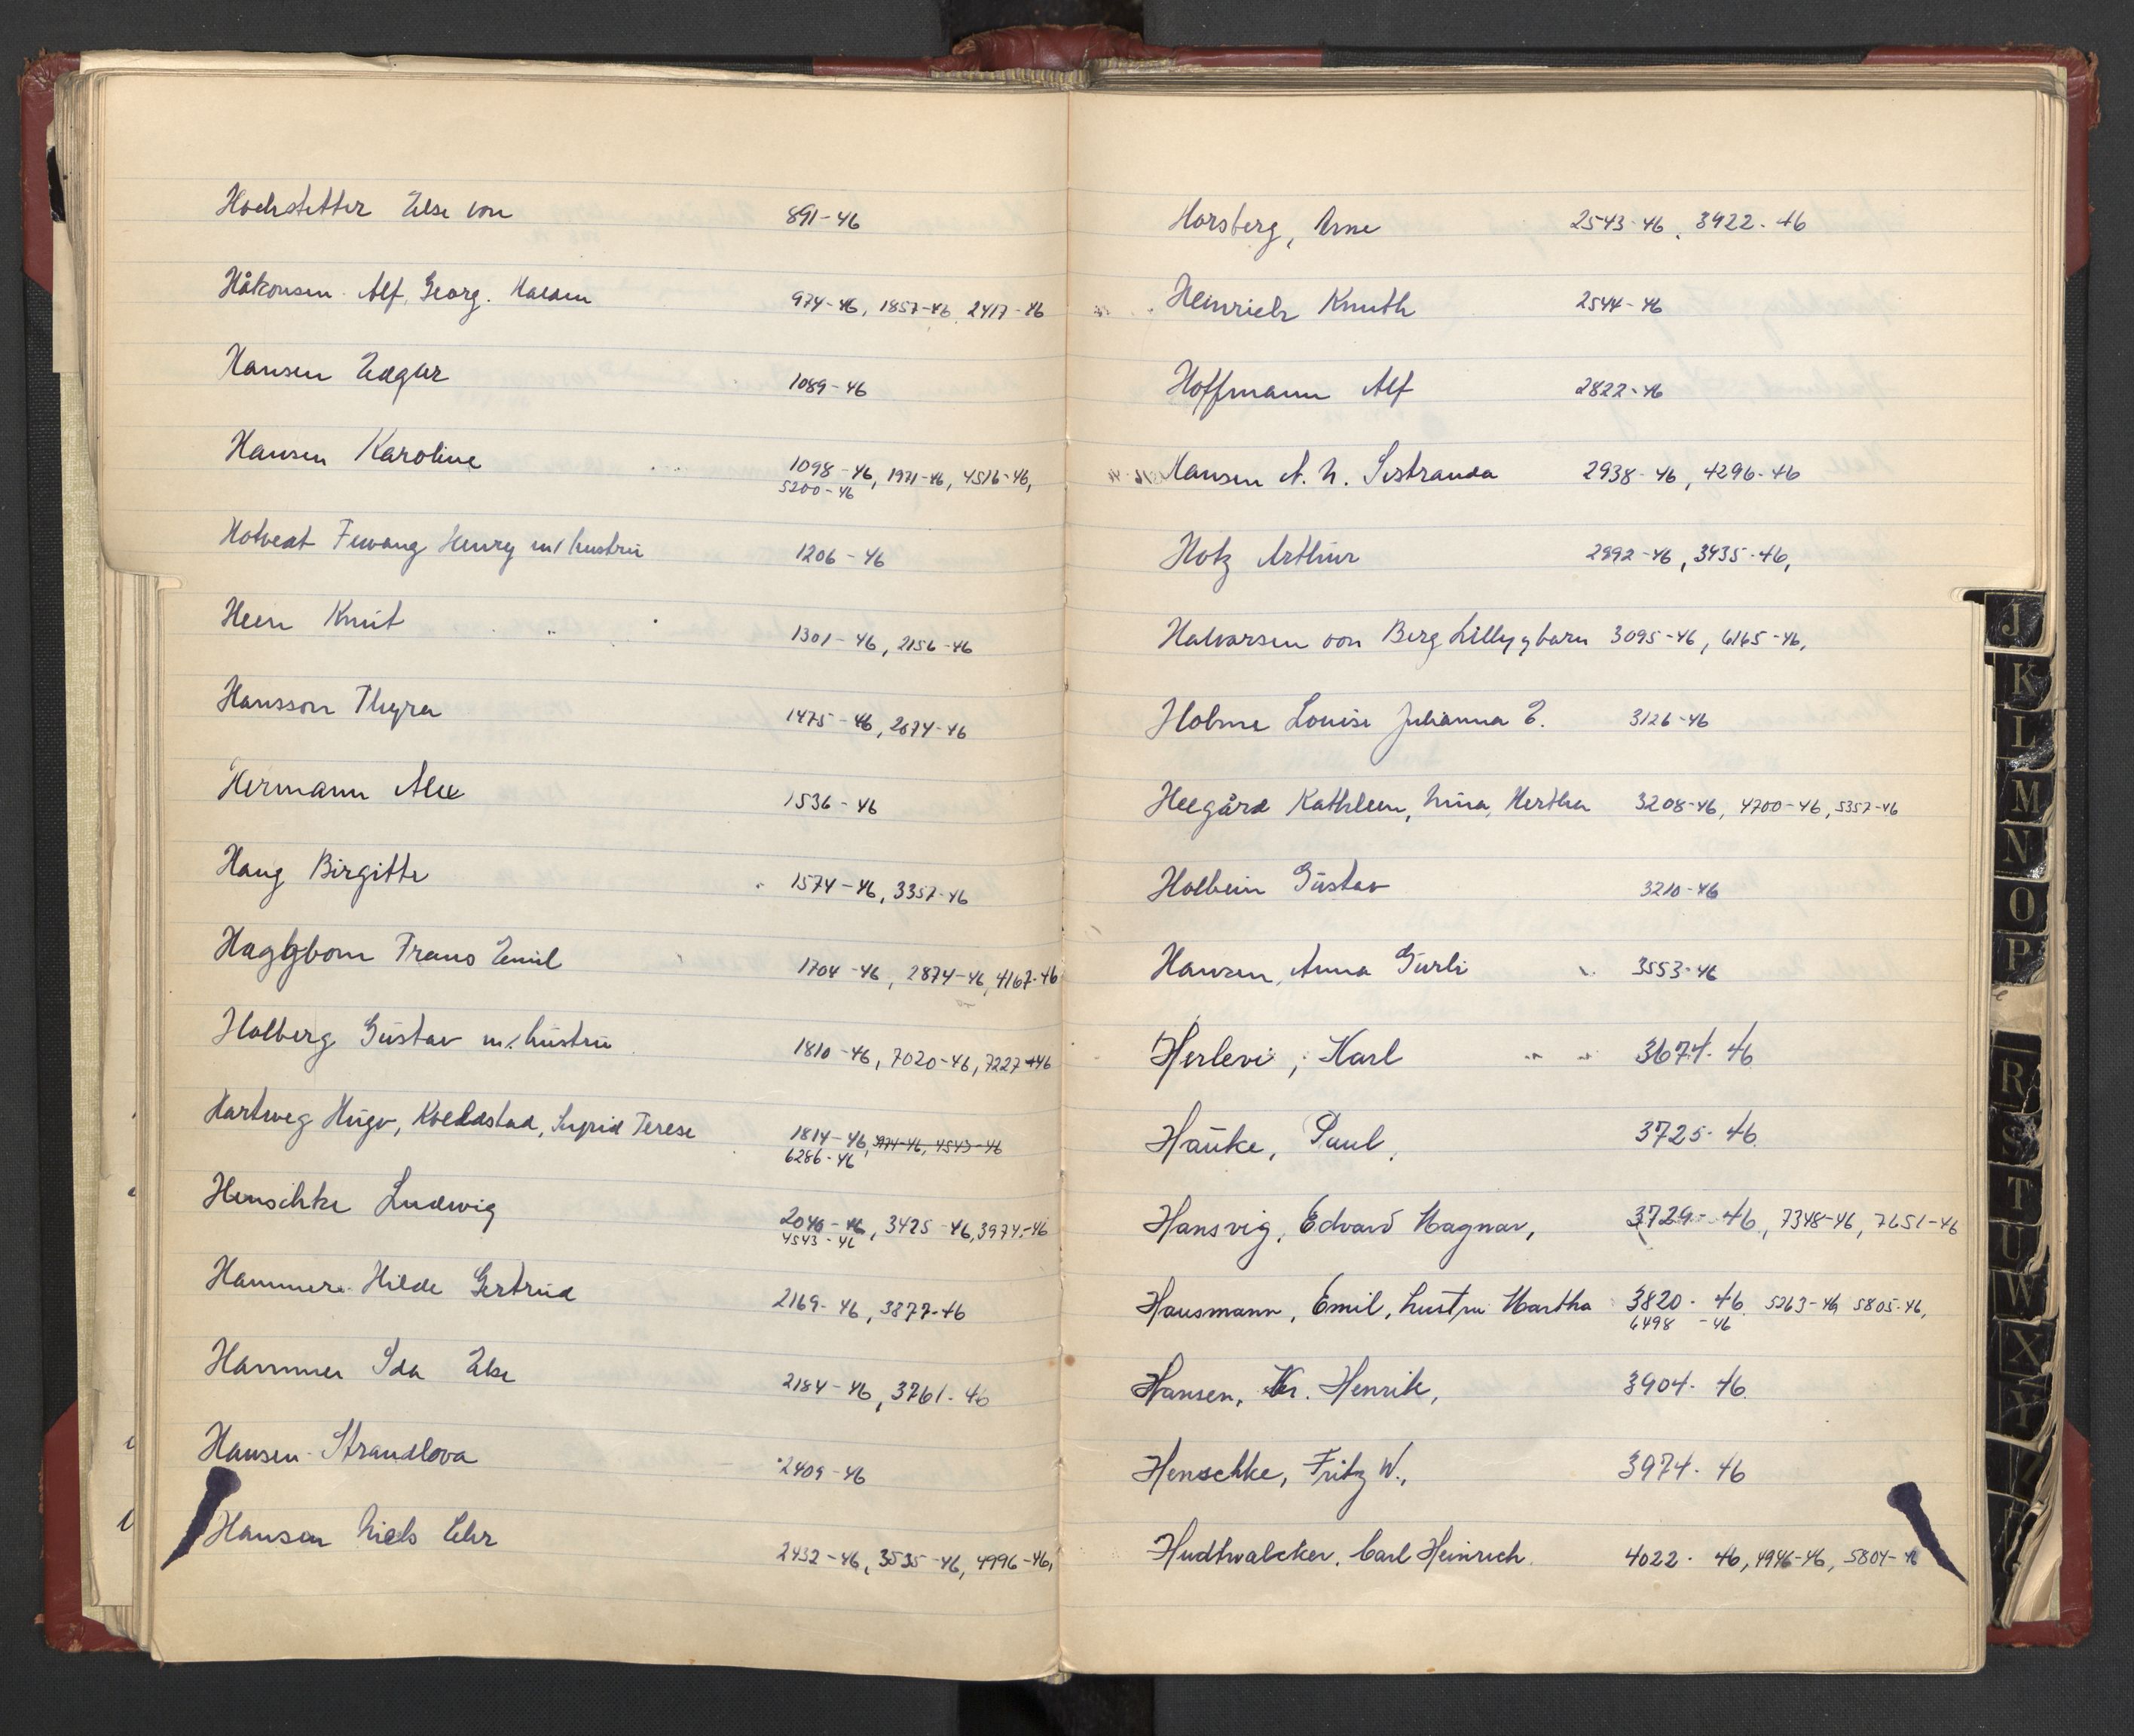 Hochstetter Else von 891-46
Håkonsen Alf, Georg. Halden 974-46, 1857-46, 2417-46
Hansen Edgar 1089-46
Hansen Karoline 1098-46, 1971-46, 4516-46,
5200-46
Hotvedt Henry m/hustru 1206-46
Heen Knut 1301-46, 2156-46
Hansson Thyra 1475-46, 2674-46
Hermann Alex 1536-46
Haug Birgitte 1574-46, 3357-46
Haggbom Frans Emil 1704-46, 2874-46, 4167-46
Holberg Gustav m/hustru 1810-46, 7020-46, 7227-46
Hartweg Hugo, Kveldstad, Sigrid Terese 1814-46, 3974-46, 4543-46
6286-46
Henschke Ludwig 2040-46, 3425-46, 3974-46
4543-46
Hammer Hilde Gertrud 2169-46, 3877-46
Hammer Ida Else 2184-46, 3761-46
Hansen Strandlova 2409-46
Hansen Niels Ehr 2432-46, 3535-46, 4996-46,
Horsberg, Arne 2543-46, 3922-46
Heinrich Knuth 2544-46
Hoffmann Alf 2822-46
Hansen A. N. Sistranda 2938-46, 4296-46
Hotz Arthur 2992-46, 3435-46,
Halvarsen von Berg Lilly g barn 3095-46, 6165-46,
Holme Louise Julianna E. 3126-46
Heegård Kathleen, Nina, Hertha 3208-46, 4700-46, 5357-46
Holbein Gustav 3210-46
Hansen, Anna Gurli 3553-46
Herlevi, Karl 3674-46
Hauke, Paul, 3725-46
Hansvig, Edvard Magnar, 3729-46, 7348-46, 7651-46
Hausmann, Emil, hustru Martha 3820-46, 5263-46, 5805-46,
6498-46
Hansen, Kr. Henrik, 3904-46
Henschke, Fritz W., 3974-46
Hudtwalcker, Carl Heinrich 4022-46, 4946-46, 5804-46
J
K
L
M
N
O
P
R
S
T
U
W
X
Y